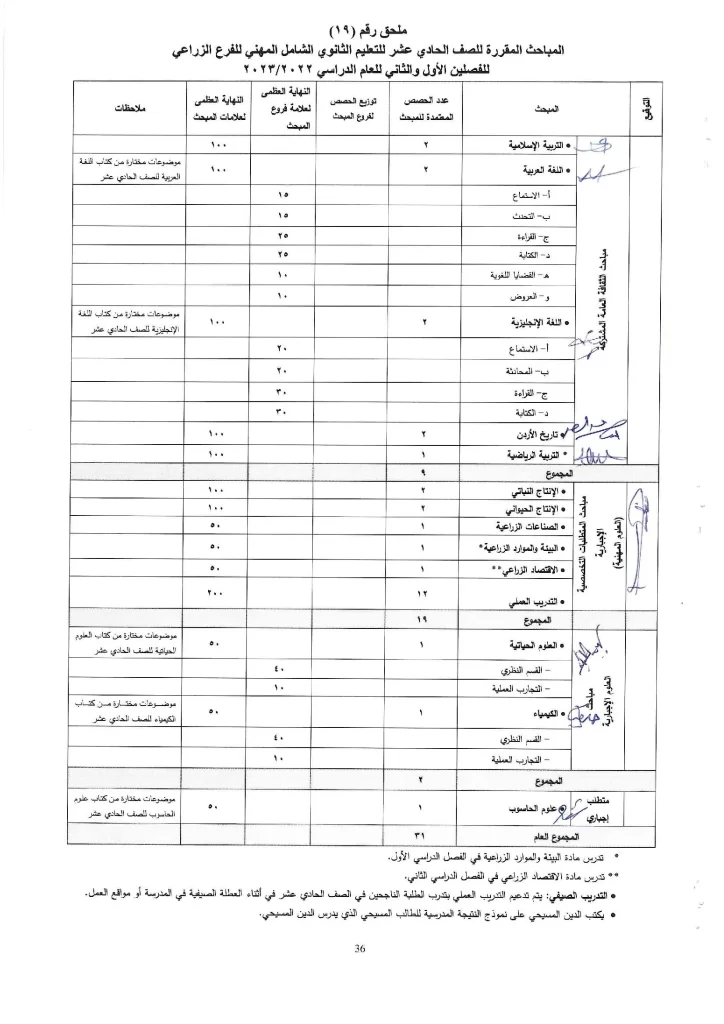 ملحق رقم (١٩)
المباحث المقررة للصف الحادي عشر للتعليم الثانوي الشامل المهني للفرع الزراعي
للفصلين الأول والثاني للعام الدراسي ٢٠٢٣/٢٠٢٢
التوقيع | المبحث | عدد الحصص المعتمدة للمبحث | توزيع الحصص لفروع المبحث | النهاية العظمى لعلامة فروع المبحث | النهاية العظمى لعلامات المبحث | ملاحظات
مباحث الثقافة العامة المشتركة
• التربية الإسلامية ٢ ١٠٠
• اللغة العربية ٢ ١٠٠ موضوعات مختارة من كتاب اللغة العربية للصف الحادي عشر
أ- الاستماع ١٥
ب- التحدث ١٥
ج- القراءة ٢٥
د- الكتابة ٢٥
هـ- القضايا اللغوية ١٠
و- العروض ١٠
• اللغة الإنجليزية ٢ ١٠٠ موضوعات مختارة من كتاب اللغة الإنجليزية للصف الحادي عشر
أ- الاستماع ٢٠
ب- المحادثة ٢٠
ج- القراءة ٣٠
د- الكتابة ٣٠
• تاريخ الأردن ٢ ١٠٠
* التربية الرياضية ١ ١٠٠
المجموع ٩
مباحث المتطلبات التخصصية الإجبارية (العلوم المهنية)
• الإنتاج النباتي ٢ ١٠٠
• الإنتاج الحيواني ٢ ١٠٠
• الصناعات الزراعية ١ ٥٠
• البيئة والموارد الزراعية* ١ ٥٠
• الاقتصاد الزراعي** ١ ٥٠
• التدريب العملي ١٢ ٢٠٠
المجموع ١٩
مباحث العلوم الإجبارية
• العلوم الحياتية ١ ٥٠ موضوعات مختارة من كتاب العلوم الحياتية للصف الحادي عشر
– القسم النظري ٤٠
– التجارب العملية ١٠
• الكيمياء ١ ٥٠ موضوعات مختارة من كتاب الكيمياء للصف الحادي عشر
– القسم النظري ٤٠
– التجارب العملية ١٠
المجموع ٢
متطلب إجباري
علوم الحاسوب ١ ٥٠ موضوعات مختارة من كتاب علوم الحاسوب للصف الحادي عشر
المجموع العام ٣١
* تدرس مادة البيئة والموارد الزراعية في الفصل الدراسي الأول.
** تدرس مادة الاقتصاد الزراعي في الفصل الدراسي الثاني.
• التدريب الصيفي: يتم تدعيم التدريب العملي بتدرب الطلبة الناجحين في الصف الحادي عشر في أثناء العطلة الصيفية في المدرسة أو مواقع العمل.
• يكتب الدين المسيحي على نموذج النتيجة المدرسية للطالب المسيحي الذي يدرس الدين المسيحي.
36